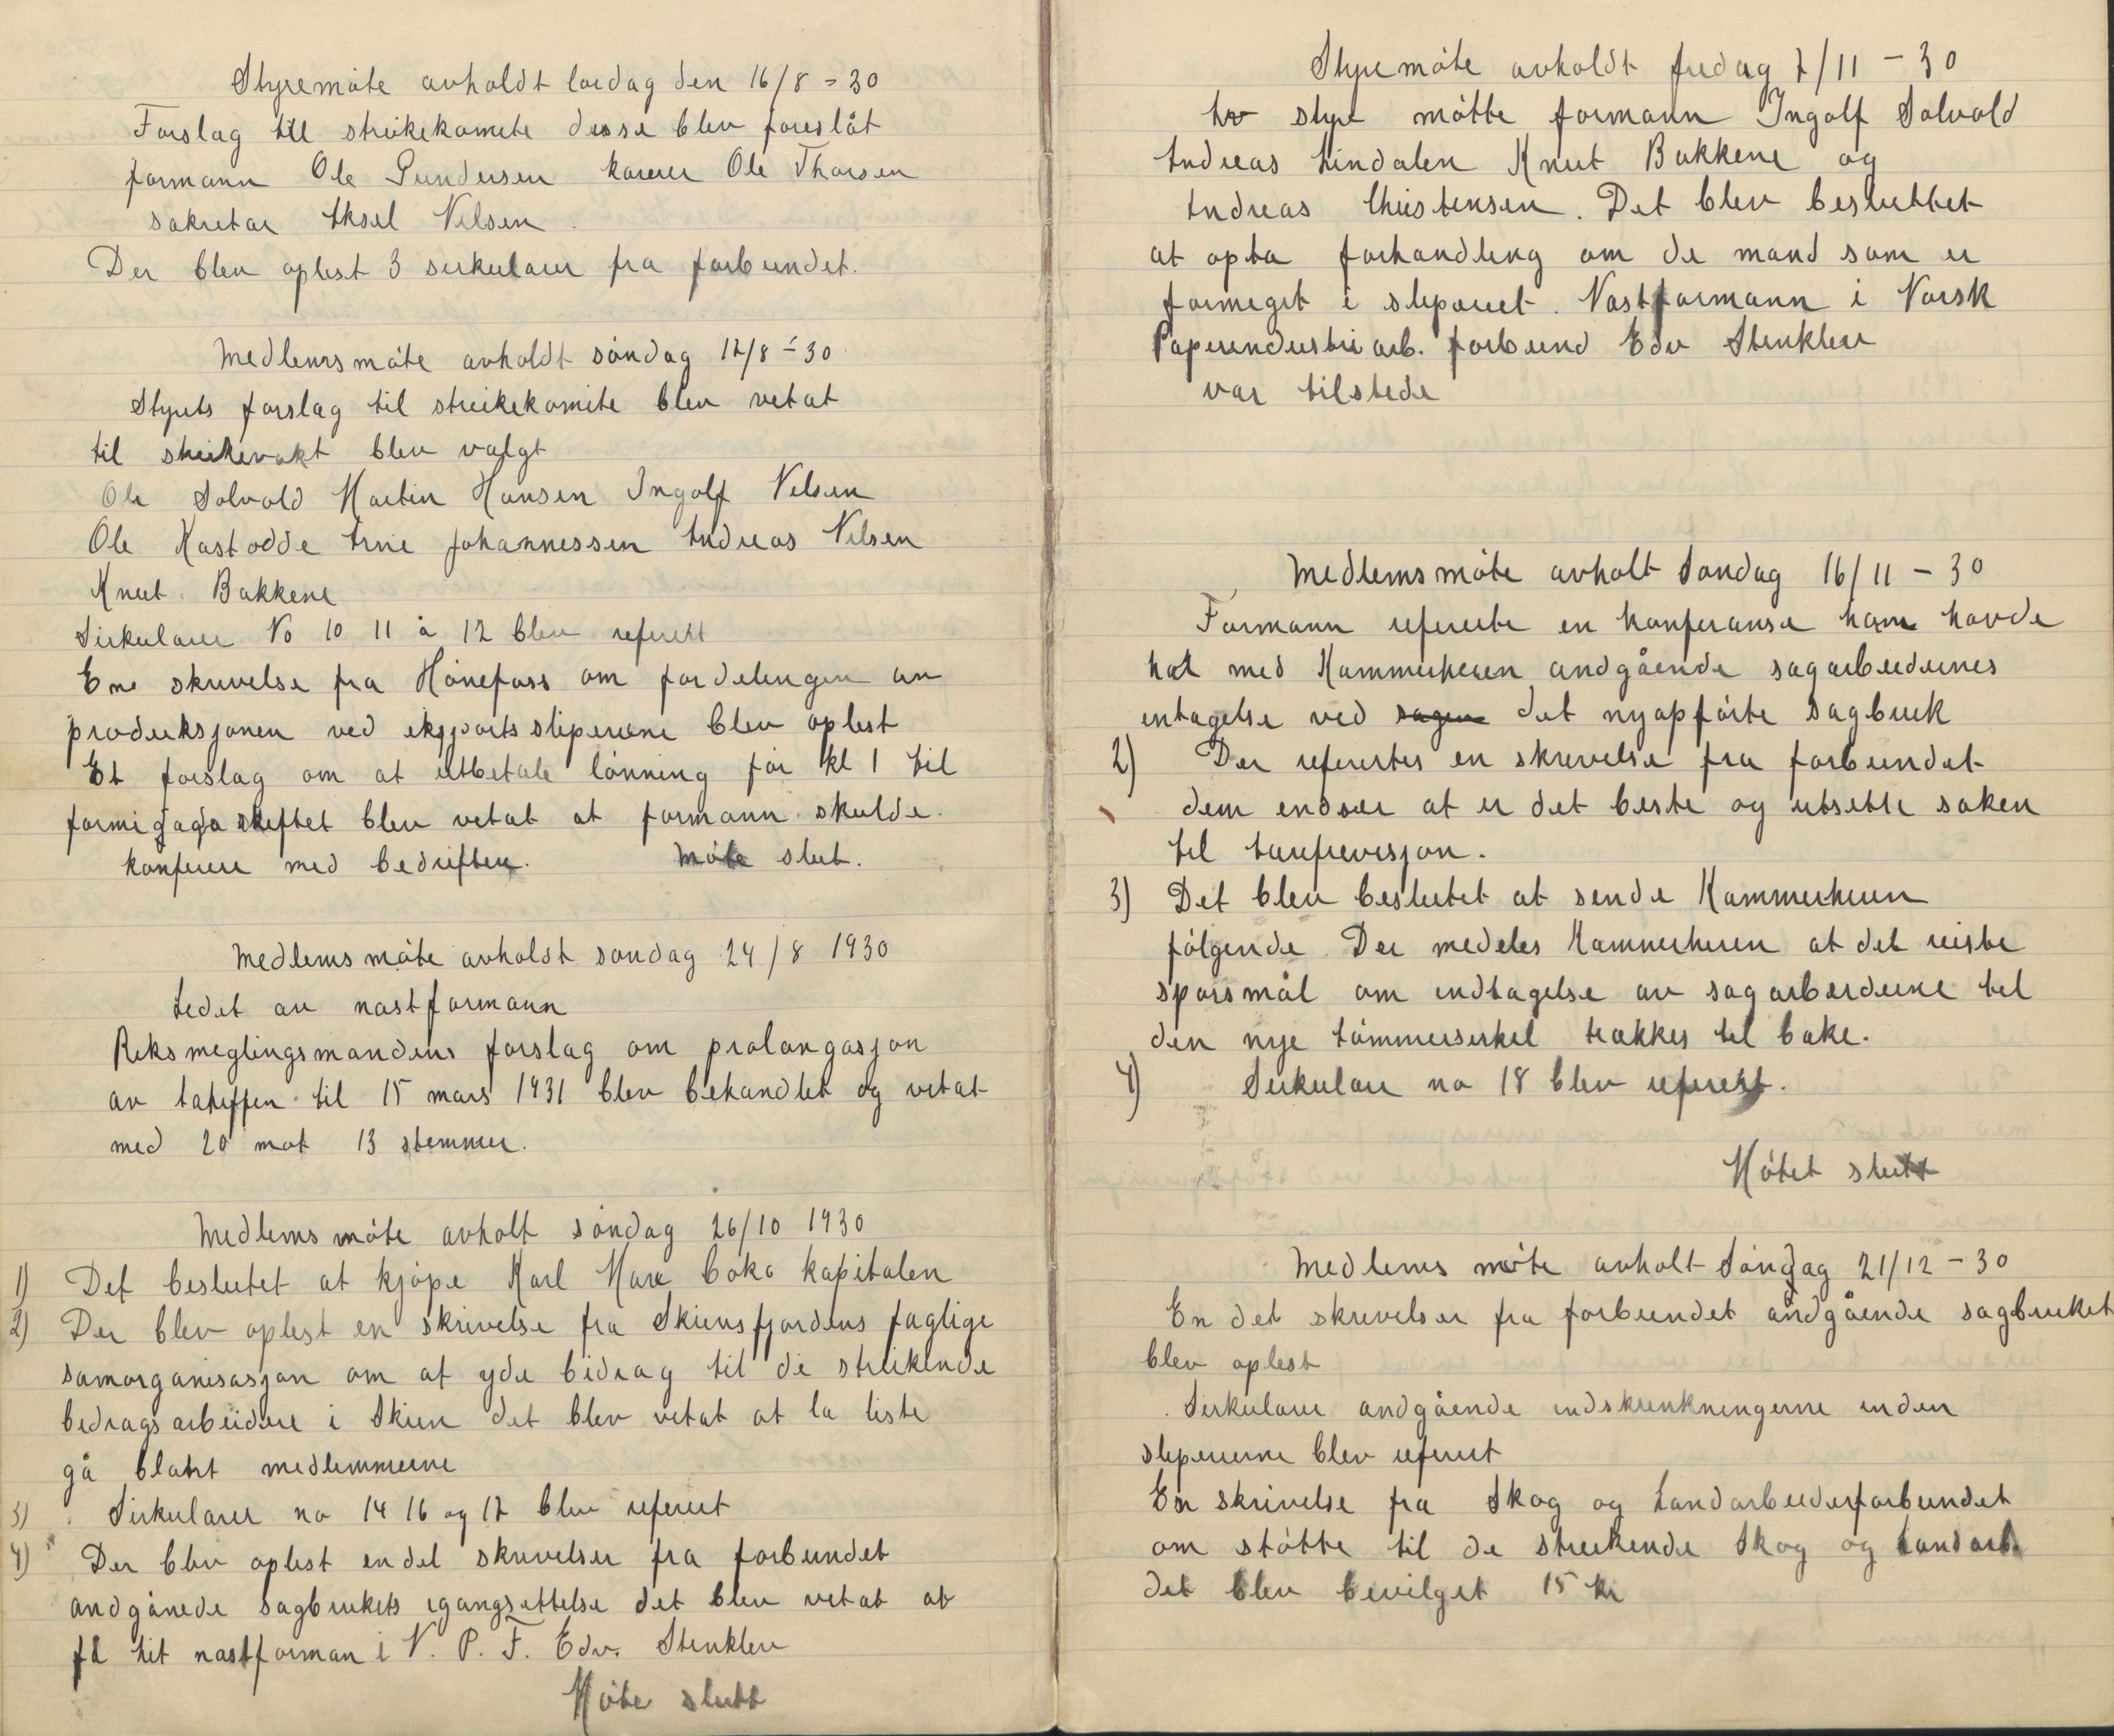 Styremøte avholdt lørdag den 16/8 - 30
Forslag til streikekomite disse blev foreslåt
formann Ole Gundersen kaserer Ole Thorsen
sekretær Aksel Nilsen
Der blev oplest 3 sirkulærer fra forbundet.
Medlemsmøte avholdt søndag 17/8 - 30
Styrets forslag til streikekomite blev vetat
til streikevakt blev valgt
Ole Solvold Martin Hansen Ingolf Nilsen
Ole Kastodde Arne Johannessen Andreas Nilsen
Knut Bakkene
Sirkulærer No 10 11 å 12 blev referert
Ene skrivelse fra Hønefoss om fordelingen av
produksjonen ved eksportsliperiene blev oplest
Et forslag om at utbetale lønning før kl 1 til
formidags skiftet blev vetat at formann skulde
konferere med bedriften. Møte slut.
Medlemsmøte avholdt søndag 24/8 1930
Ledet av næstformann
Riksmeglingsmandens forslag om prolongasjon
av tariffen til 15 mars 1931 blev behandlet og vetat
med 20 mot 13 stemmer.
Medlemsmøte avholt søndag 26/10 1930
1) Det besluttet at kjøpe Karl Marx boka kapitalen
2) Der blev oplest en skrivelse fra Skiensfjordens faglige
samorganisasjon om at yde bidrag til de streikende
bedragsarbeidere i Skien det blev vetat at la liste
gå blant medlemmerne
3) Sirkulærer no 14 16 og 17 blev referert
4) Der blev oplest endel skrivelser fra forbundet
andgånede sagbrukets igangsettelse det blev vetat at
få hit næstforman i N. P. F. Edv. Stenklev
Møte slutt
Styremøte avholdt fredag 7/11 - 30
Av styre møtte formann Ingolf Solvold
Andreas Lindalen Knut Bakkene og
Andreas Christensen. Det blev besluttet
at opta forhandling om de mand som er
formeget i sliperiet. Næstformann i Norsk
Papirindustriarb. forbund Edv Stenklev
var tilstede
Medlemsmøte avholt Søndag 16/11 - 30
Formann refererte en konferanse han havde
hat med Kammerheren andgående sagarbeidernes
intagelse ved sagen det nyopførte sagbruk
2) Der referertes en skrivelse fra forbundet
dem endser at er det beste og utsette saken
til tarifrevisjon.
3) Det blev beslutet at sende Kammerheren
følgende. Der medeles Kammerheren at det reiste
spørsmål om indtagelse av sagarbeiderne til
den nye tømmersirkel trækkes til bake.
4) Sirkulære no 18 blev referert.
Møtet slutt
Medlems møte avholt Søndag 21/12 - 30
En del skrivelser fra forbundet andgående sagbruket
blev oplest
Sirkulærer andgående indskrenkningerne inden
sliperierne blev referert
En skrivelse fra Skog og Landarbeiderforbundet
om støtte til de streikende Skog og Landarb.
det blev bevilget 15 kr